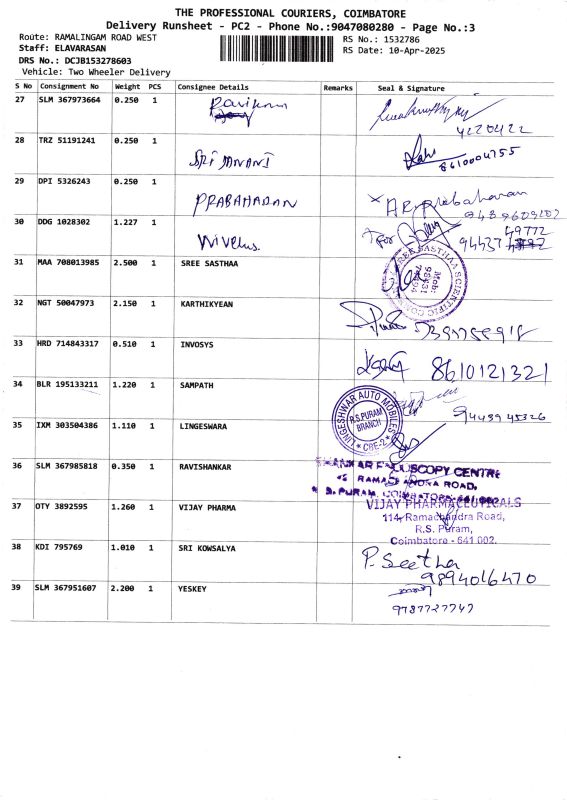 THE PROFESSIONAL COURIERS, COIMBATORE
Delivery Runsheet - PC2 - Phone No.:9047080280 - Page No.:3
Route: RAMALINGAM ROAD WEST
RS No.: 1532786
Staff: ELAVARASAN
RS Date: 10-Apr-2025
DRS No.: DCJB153278603
Vehicle: Two Wheeler Delivery
S No Consignment No Weight PCS Consignee Details Remarks Seal & Signature
27 SLM 367973664 0.250 1
28 TRZ 51191241 0.250 1 SRI JANANI
8610004755
29 DPI 5326243 0.250 1 PRABAHARAN
A.R. Prabaharan
30 DDG 1028302 1.227 1
For
31 MAA 708013985 2.500 1 SREE SASTHAA
SREE SASTHAA SCIENTIFIC
Mob:
32 NGT 50047973 2.150 1 KARTHIKYEAN
33 HRD 714843317 0.510 1 INVOSYS
8610121321
34 BLR 195133211 1.220 1 SAMPATH
9443945326
35 IXM 303504386 1.110 1 LINGESWARA
LINGESHWAR AUTO MOBILES
R.S.PURAM
BRANCH
CBE-2
36 SLM 367985818 0.350 1 RAVISHANKAR
CENTRE
RAMACHANDRA ROAD,
37 OTY 3892595 1.260 1 VIJAY PHARMA
VIJAY PHARMACEUTICALS
114, Ramachandra Road,
R.S. Puram,
Coimbatore - 641 002.
38 KDI 795769 1.010 1 SRI KOWSALYA
P. Seetha
9894016470
39 SLM 367951607 2.200 1 YESKEY
9787727747